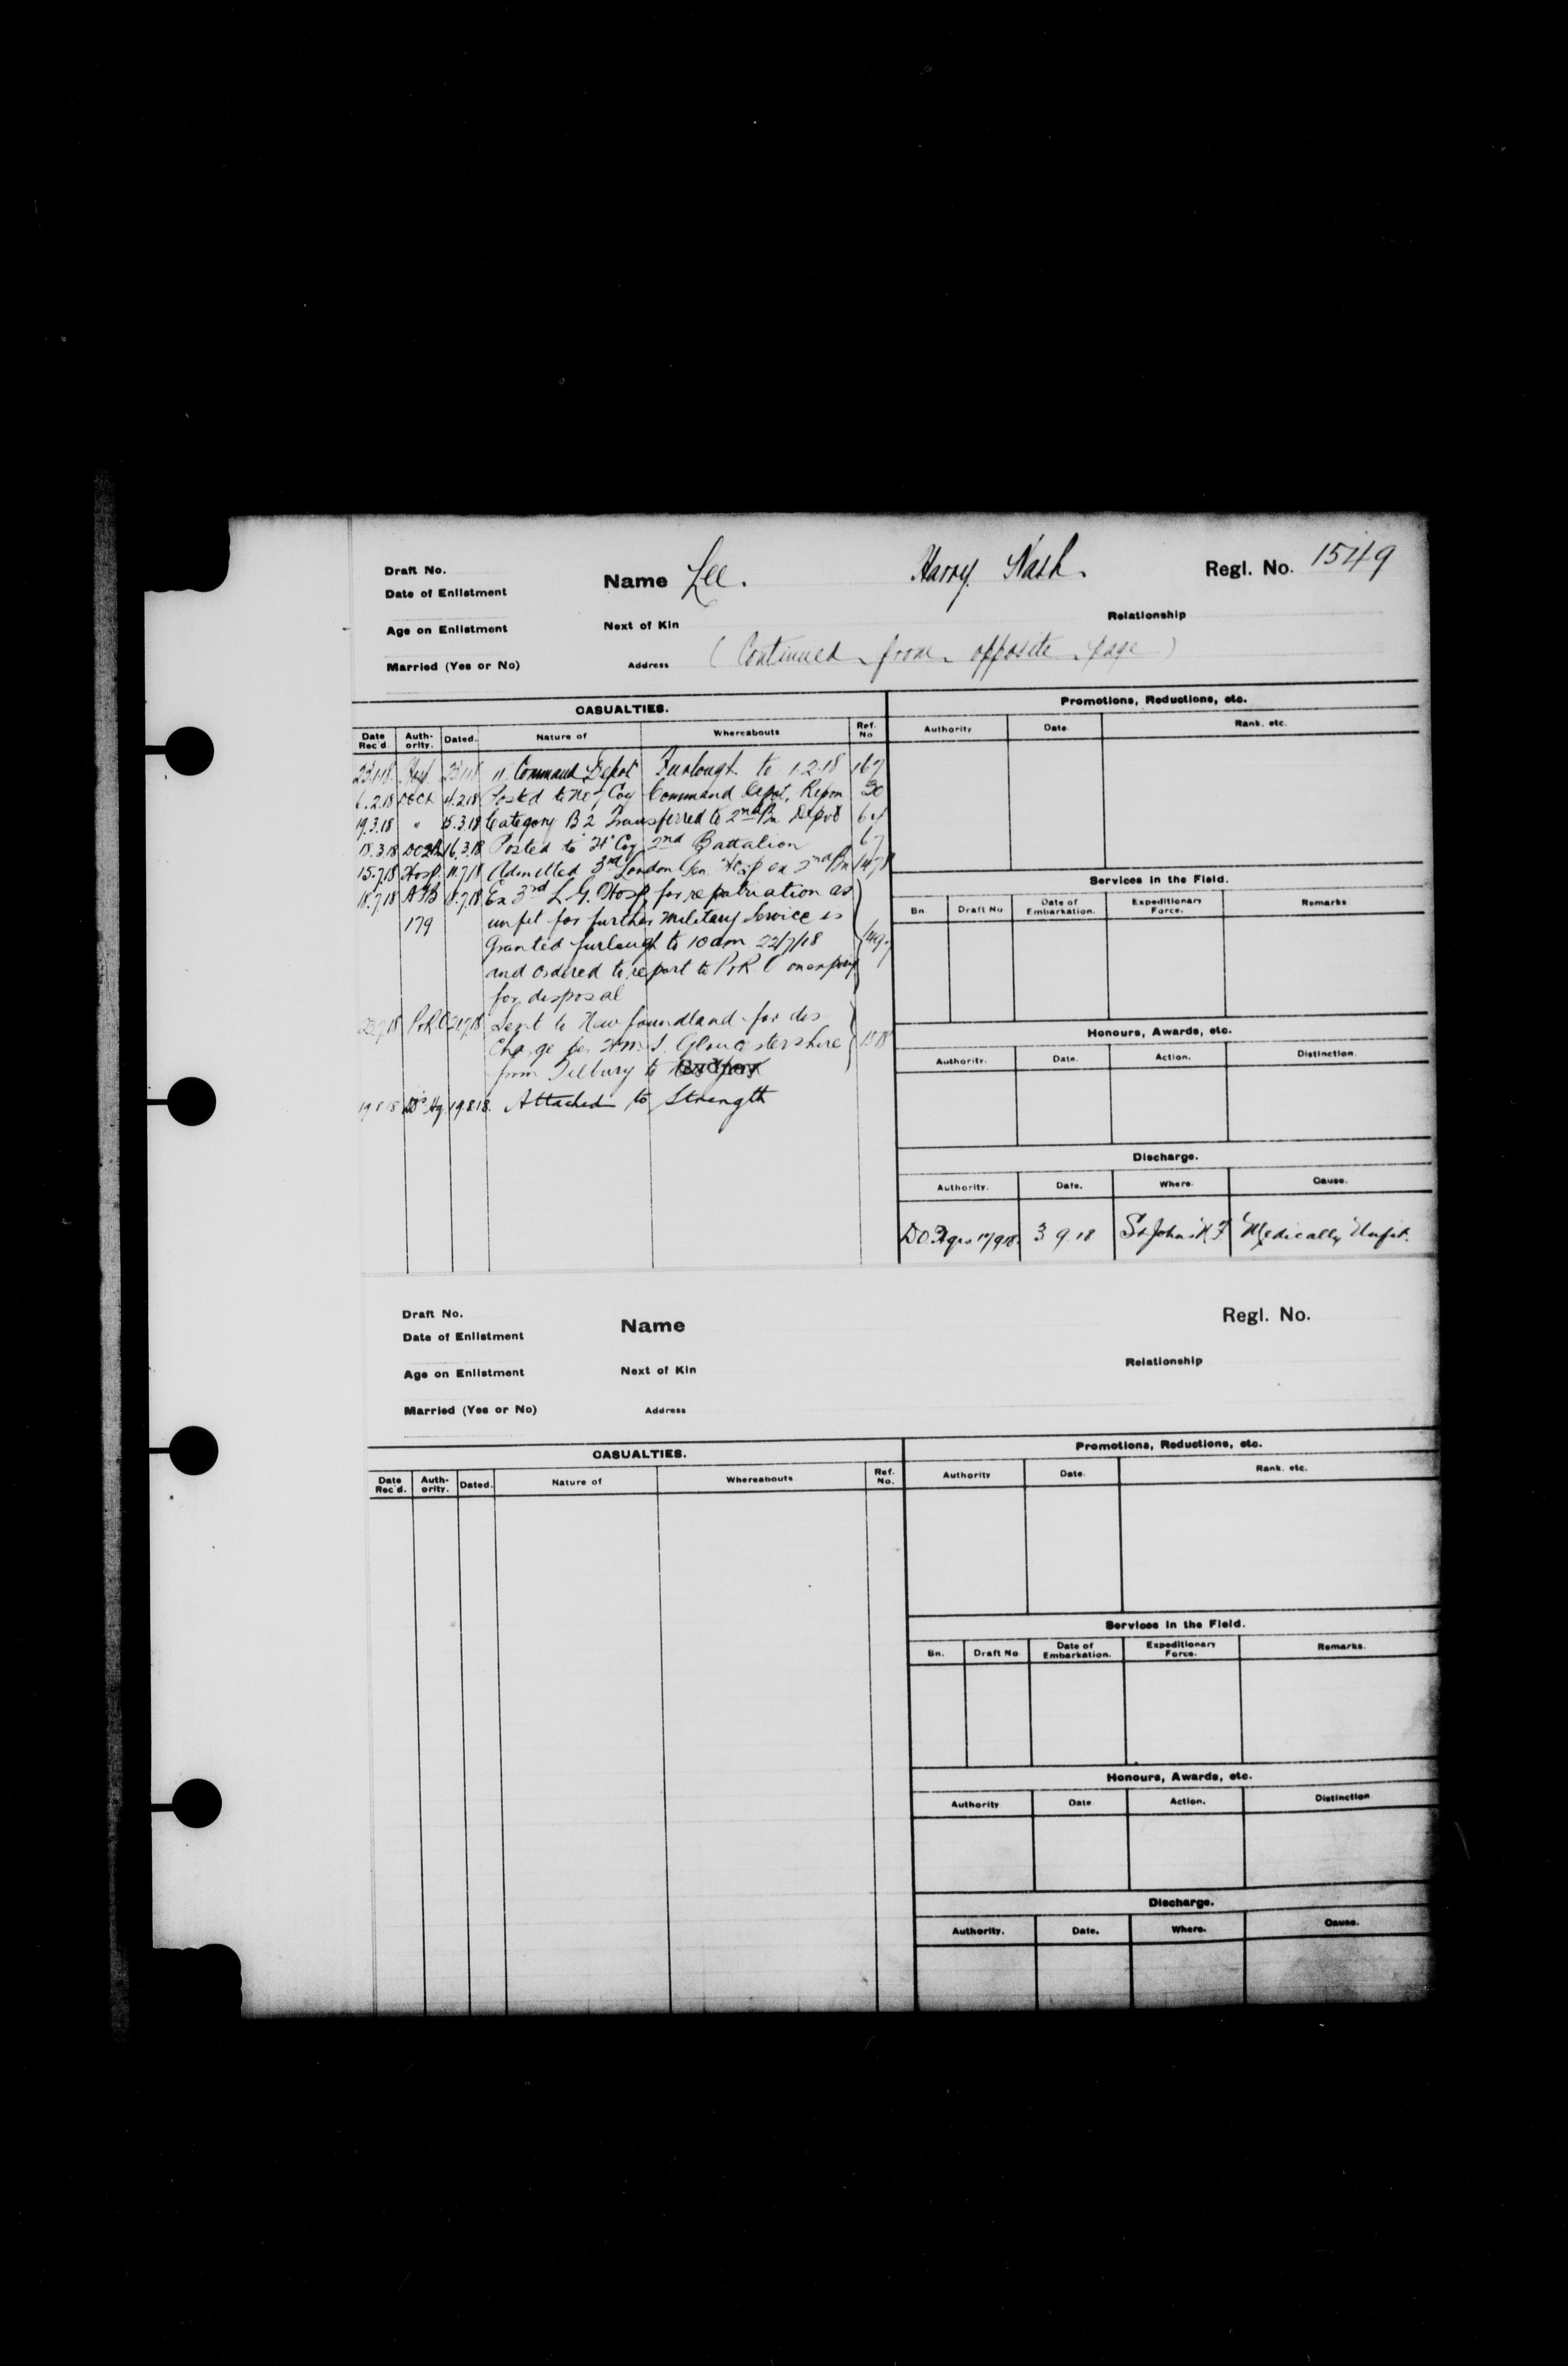 Draft No.
Date of Enlistment
Name Lee. Harry Nash. Regl. No. 1549
Age on Enlistment Next of Kin Relationship
Married (Yes or No) Address (Continued from opposite page)
CASUALTIES. Promotions, Reductions, etc.
Date Rec'd. Auth-ority. Dated. Nature of Whereabouts Ref. No Authority Date. Rank. etc.
Hosp. Command Depot Furlough to 1.2.18 167
6.2.18 4.2.18 Posted to No 7 Coy Command Depot, Ripon 30
19.3.18 " 15.3.18 Category B2 Transferred to 2nd Bn Depot 64
18.3.18 16.3.18 Posted to "H" Coy 2nd Battalion 67
15.7.18 Hosp. 11.7.18 Admitted 3rd London Gen Hosp ex 2nd Bn
18.7.18 AFB 179 Ex 3rd L.G. Hosp for repatriation as
unfit for further Military Service is
Granted furlough to 10 am 22/7/18
and ordered to report to P&R.O on expiry
for disposal
Sent to Newfoundland for dis
charge per H.M.S. Gloucestershire
from Tilbury to
19.8.18 19.8.18. Attached to Strength
Services in the Field.
Bn. Draft No Date of Embarkation. Expeditionary Force. Remarks
Honours, Awards, etc.
Authority. Date. Action. Distinction.
Discharge.
Authority. Date. Where. Cause.
3 9 18 St John's N.F. "Medically Unfit.
Draft No.
Date of Enlistment
Name Regl. No.
Age on Enlistment Next of Kin Relationship
Married (Yes or No) Address
CASUALTIES. Promotions, Reductions, etc.
Date Rec'd. Auth-ority. Dated. Nature of Whereabouts Ref. No. Authority Date. Rank. etc.
Services in the Field.
Bn. Draft No Date of Embarkation. Expeditionary Force. Remarks.
Honours, Awards, etc.
Authority Date Action. Distinction
Discharge.
Authority. Date. Where. Cause.